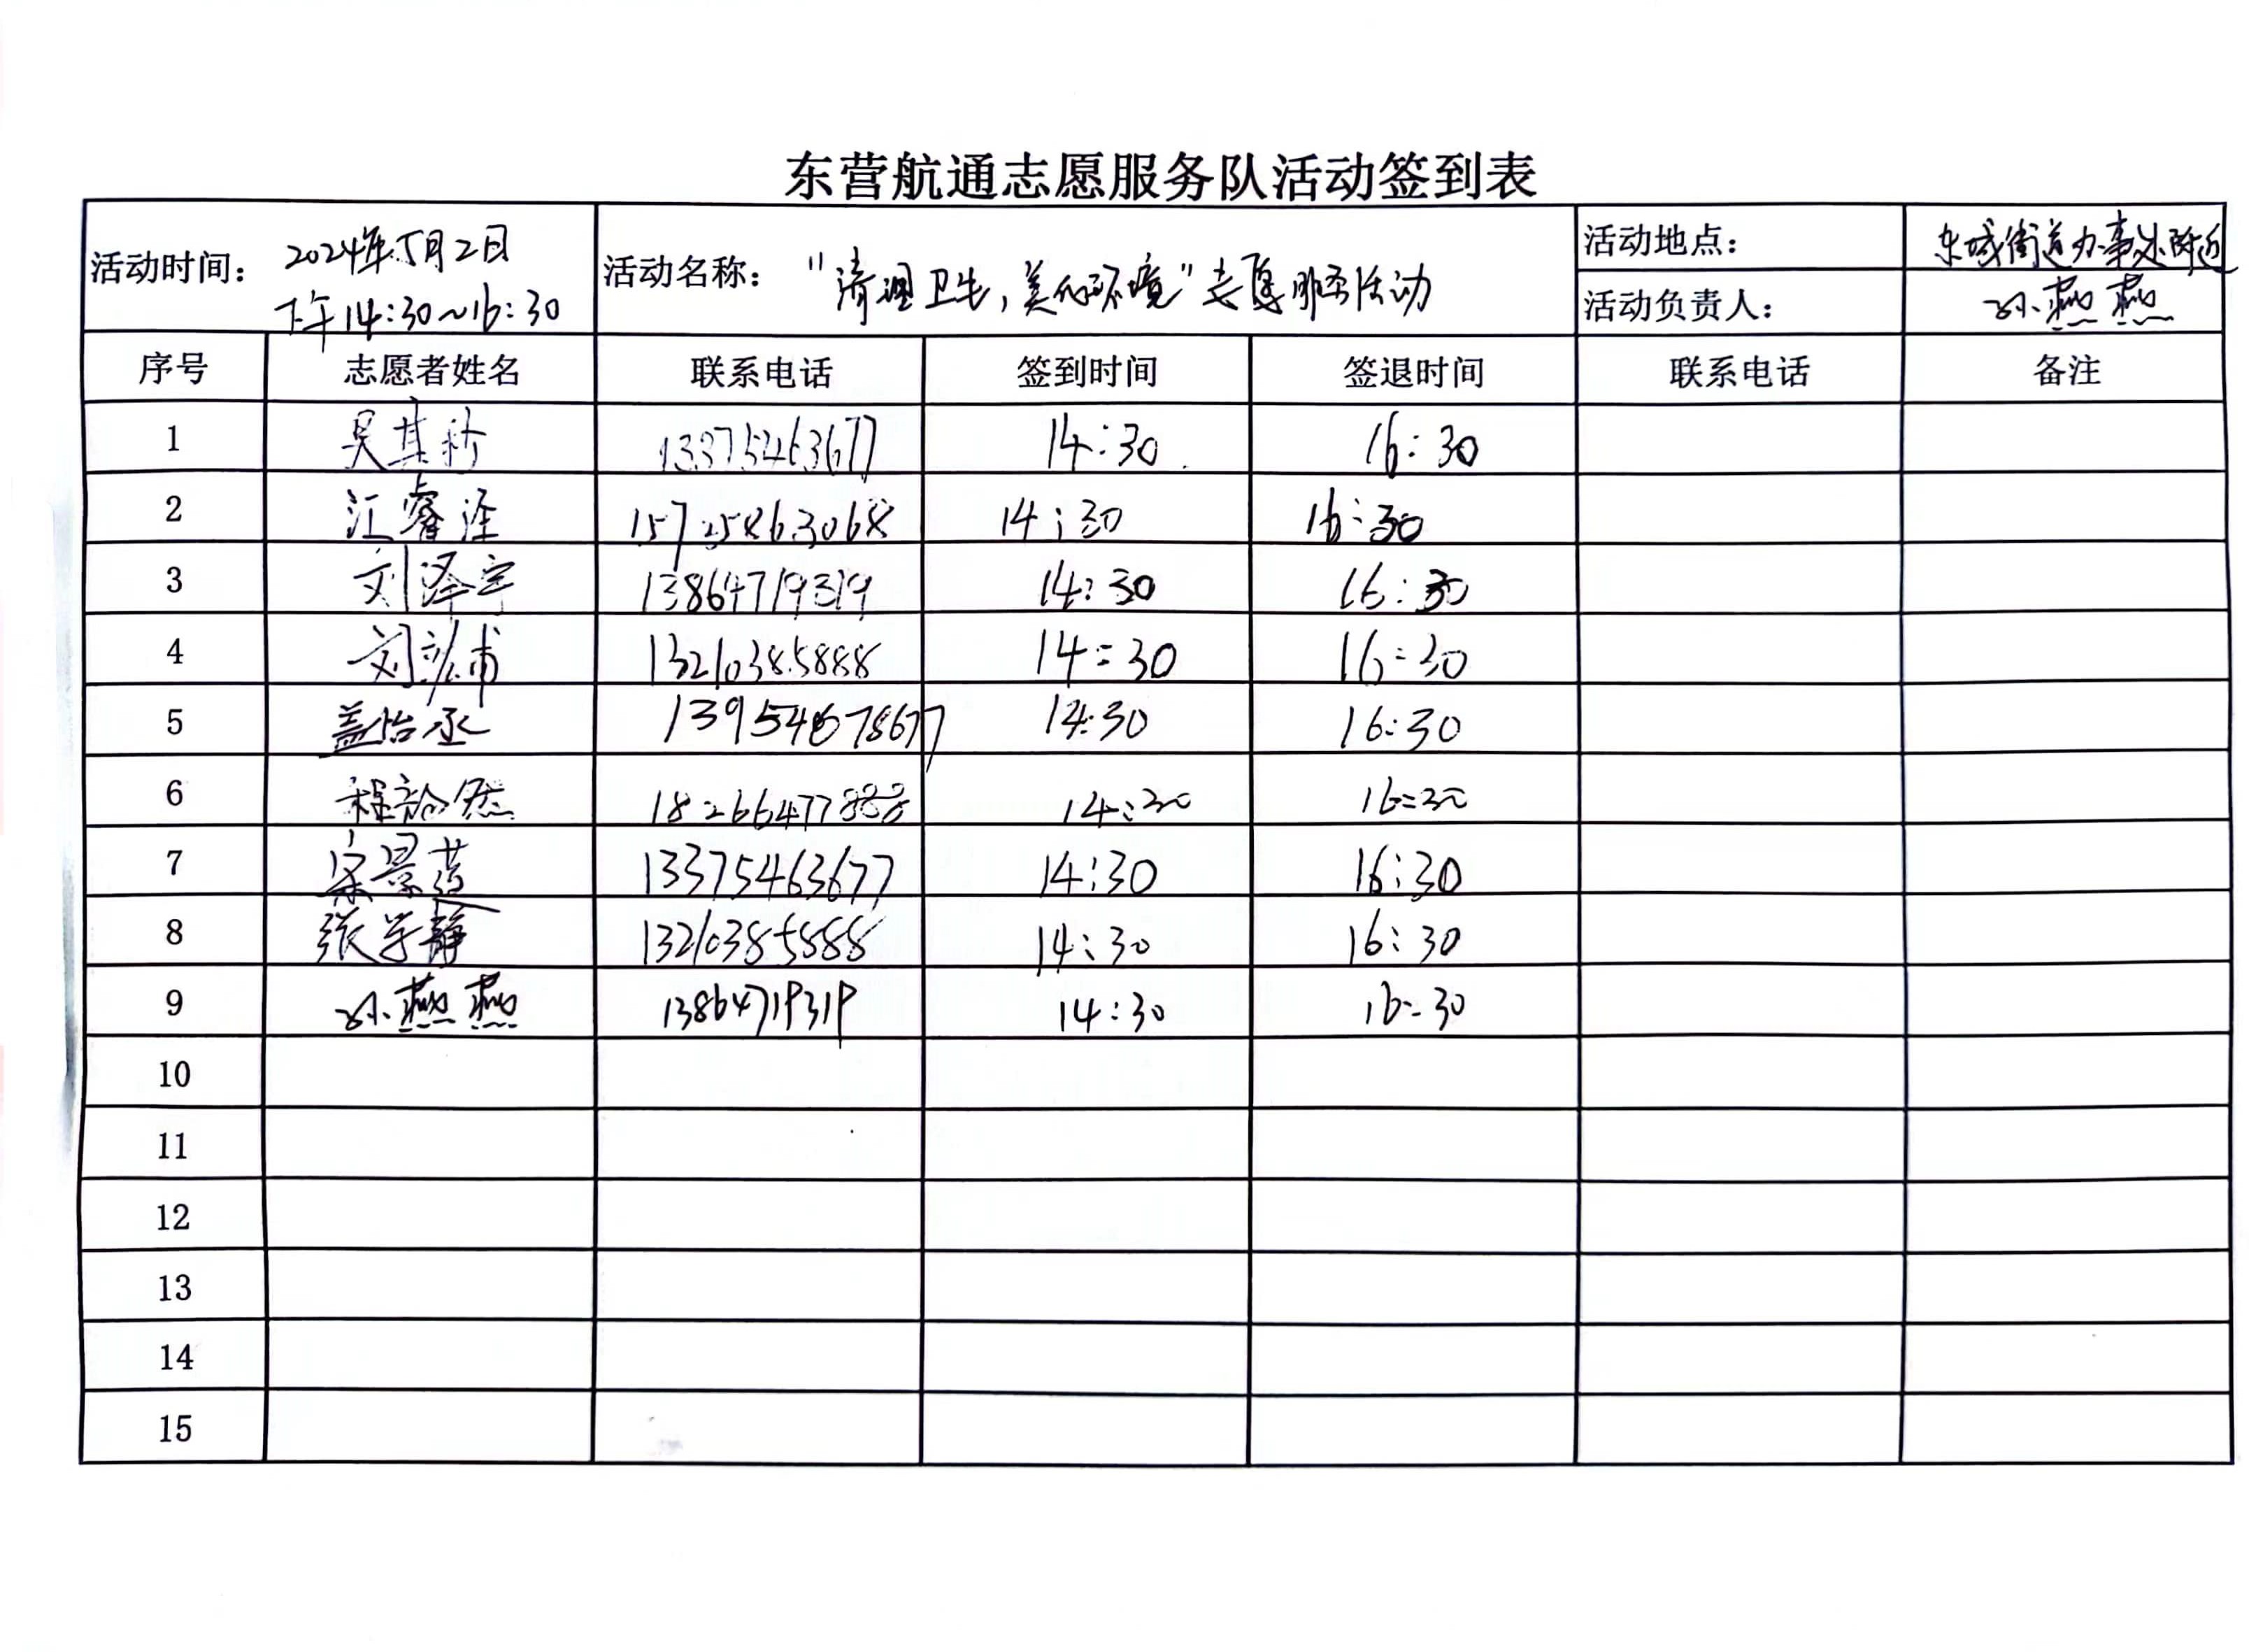 东营航通志愿服务队活动签到表
活动时间： 2024年5月2日
下午14:30~16:30
活动名称： "清理卫生,美化环境"志愿服务活动
活动地点： 东城街道办事处附近
活动负责人： 孙燕燕
序号 志愿者姓名 联系电话 签到时间 签退时间 联系电话 备注
1 吴其 13375463677 14:30 16:30
2 江睿 15725863068 14:30 16:30
3 刘泽宇 13864719319 14:30 16:30
4 刘 甫 13210385888 14:30 16:30
5 盖怡丞 13954678677 14:30 16:30
6 程 然 18266477888 14:30 16:30
7 宋景 13375463677 14:30 16:30
8 张学静 13210385888 14:30 16:30
9 孙燕燕 13864719319 14:30 16:30
10
11
12
13
14
15